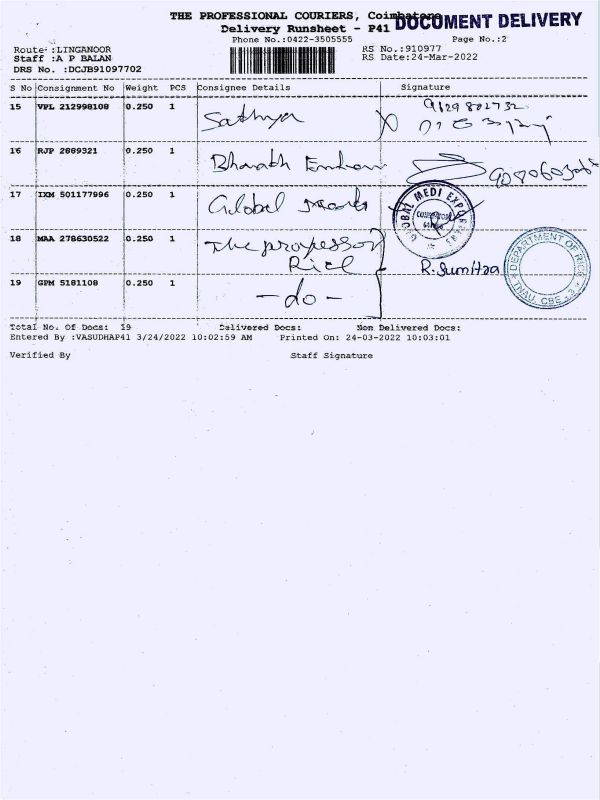 THE PROFESSIONAL COURIERS, Coimbatore
DOCUMENT DELIVERY
Delivery Runsheet - P41
Phone No.:0422-3505555
Page No.:2
Route :LINGANOOR
RS No.:910977
Staff :A P BALAN
RS Date:24-Mar-2022
DRS No. :DCJB91097702
S No Consignment No Weight PCS Consignee Details Signature
15 VPL 212998108 0.250 1 Sathya
16 RJP 2889321 0.250 1 Bharath
17 IXM 501177996 0.250 1 Global
18 MAA 278630522 0.250 1 The professor
Rice
R. Sumitra
DEPARTMENT OF RICE
TNAU, CBE - 3
19 GPM 5181108 0.250 1 - do -
Total No. Of Docs: 19 Dalivered Docs: Non Delivered Docs:
Entered By :VASUDHAP41 3/24/2022 10:02:59 AM Printed On: 24-03-2022 10:03:01
Verified By Staff Signature